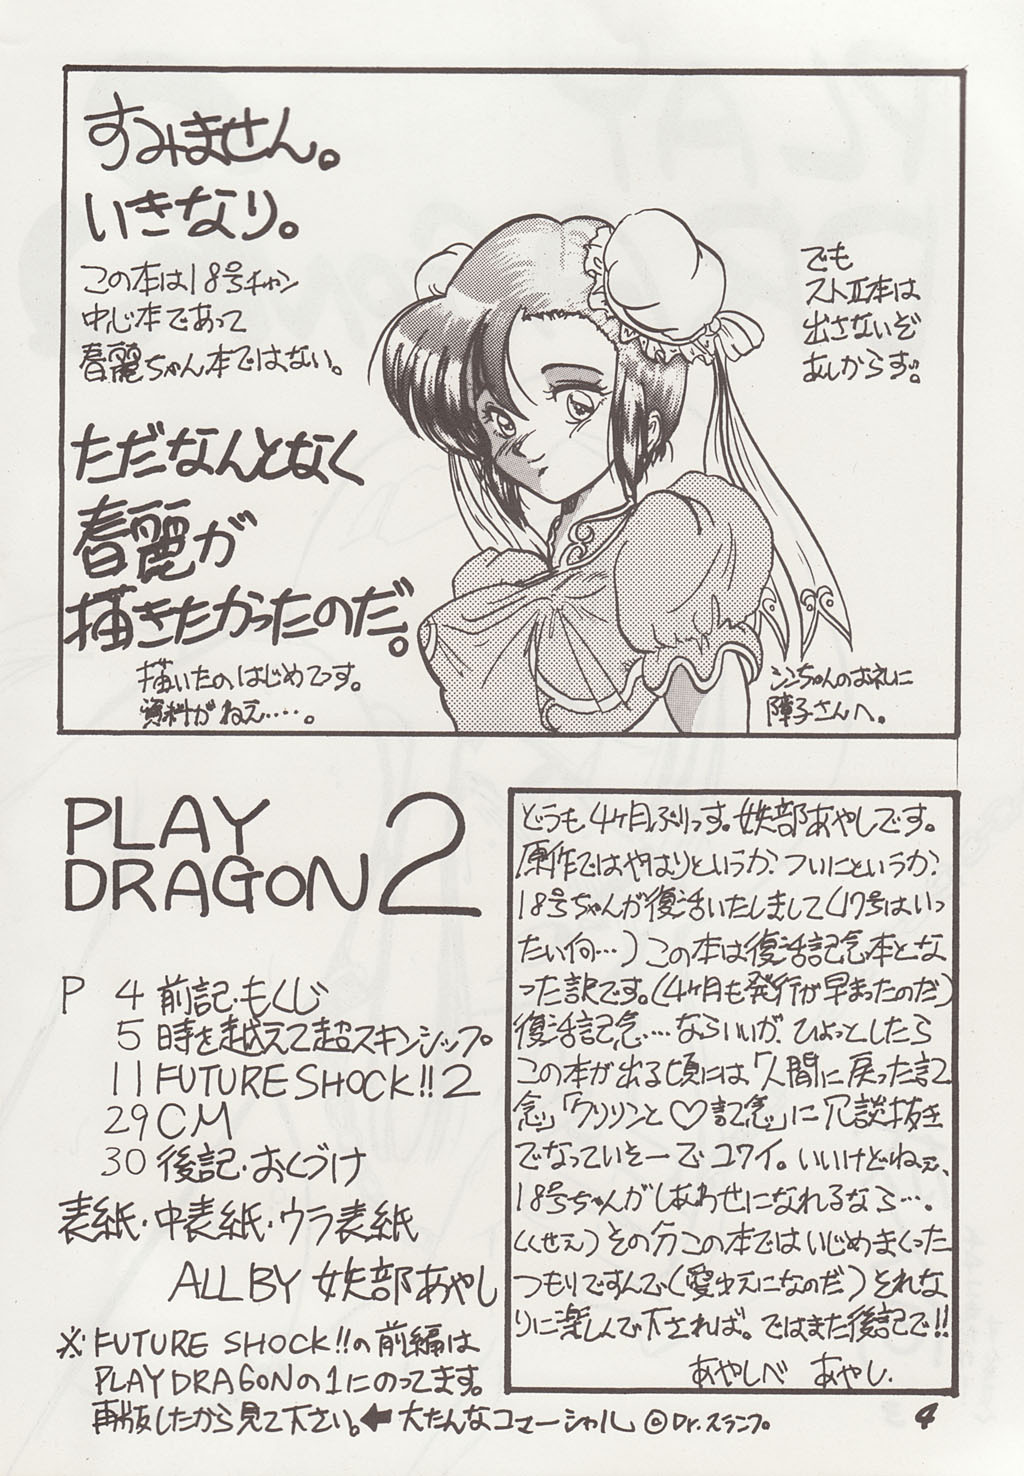 すみません。
いきなり。
この本は18号チャン
中心本であって
春麗ちゃん本ではない。
ただなんとなく
春麗が
描きたかったのだ。
描いたのはじめてっす。
資料がねえ・・・・。
でも
ストⅡ本は
出さないぞ
あしからず。
シンちゃんのお礼に
障子さんへ。
PLAY
DRAGON 2
P 4 前記・もくじ
5 時を越えて超スキンシップ
11 FUTURE SHOCK!! 2
29 CM
30 後記・おくづけ
表紙・中表紙・ウラ表紙
ALL BY 妖部あやし
※FUTURE SHOCK!!の前編は
PLAY DRAGONの1にのってます。
再版したから見て下さい。←大たんなコマーシャル ©Dr.スランプ
どうも4ヶ月ぶりっす。妖部あやしです。
原作ではやはりというか、ついにというか、
18号ちゃんが復活いたしまして(17号はいっ
たい何…)この本は復活記念本とな
った訳です。(4ヶ月も発行が早まったのだ)
復活記念・・・・ならいいが、ひょっとしたら
この本が出る頃には「人間に戻った記
念」「クリリンと♡記念」に冗談抜き
でなっていそーでコワイ。いいけどねぇ、
18号ちゃんがしあわせになれるなら…。
(くせえ)その分この本ではいじめまくった
つもりですんで(愛ゆえになのだ)それな
りに楽しんで下されば。ではまた後記で!!
あやしべ あやし.
4